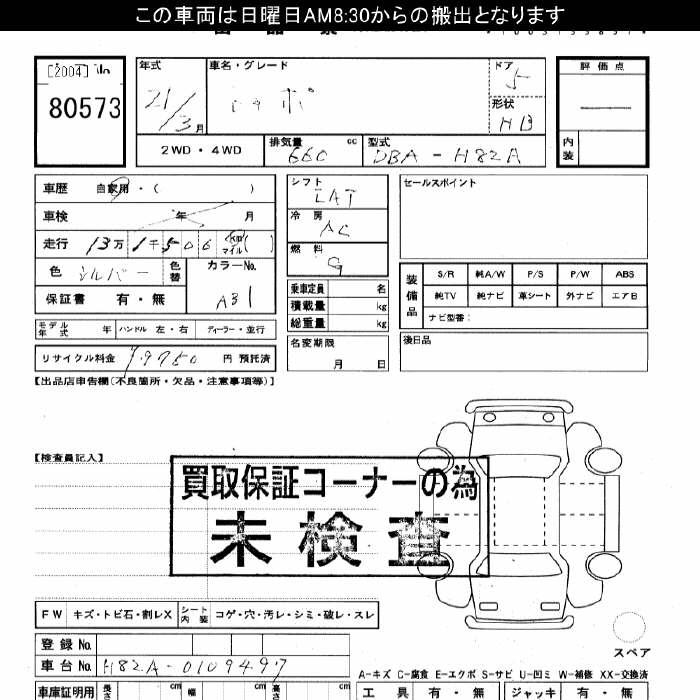 この車両は日曜日AM8:30からの搬出となります
[2004] No
80573
年式 車名・グレード ドア 評価点
21/3月 トッポ 5
形状
HB
2WD・4WD 排気量 660 cc 型式 DBA-H82A 内装
車歴 自家用・( )
車検 年 月
走行 13万1千506 km マイル ( )
色 シルバー 色替 カラーNo. A31
保証書 有・無
モデル年式 年 ハンドル 左・右 ディーラー・並行
リサイクル料金 円 預託済
シフト LAT
冷房 AC
燃料 G
乗車定員 名
積載量 kg
総重量 kg
名変期限 月 日
セールスポイント
装備品 S/R 純A/W P/S P/W ABS
純TV 純ナビ 革シート 外ナビ エアB
ナビ型番:
後日品
【出品店申告欄(不良箇所・欠品・注意事項等)】
【検査員記入】
買取保証コーナーの為
未検査
FW キズ・トビ石・割レX シート内装 コゲ・穴・汚レ・シミ・破レ・スレ
登録No.
車台No. H82A-0109497
スペア
A-キズ C-腐食 E-エクボ S-サビ U-凹ミ W-補修 XX-交換済
車庫証明用 長さ cm 幅 cm 高さ cm
工具 有・無 ジャッキ 有・無